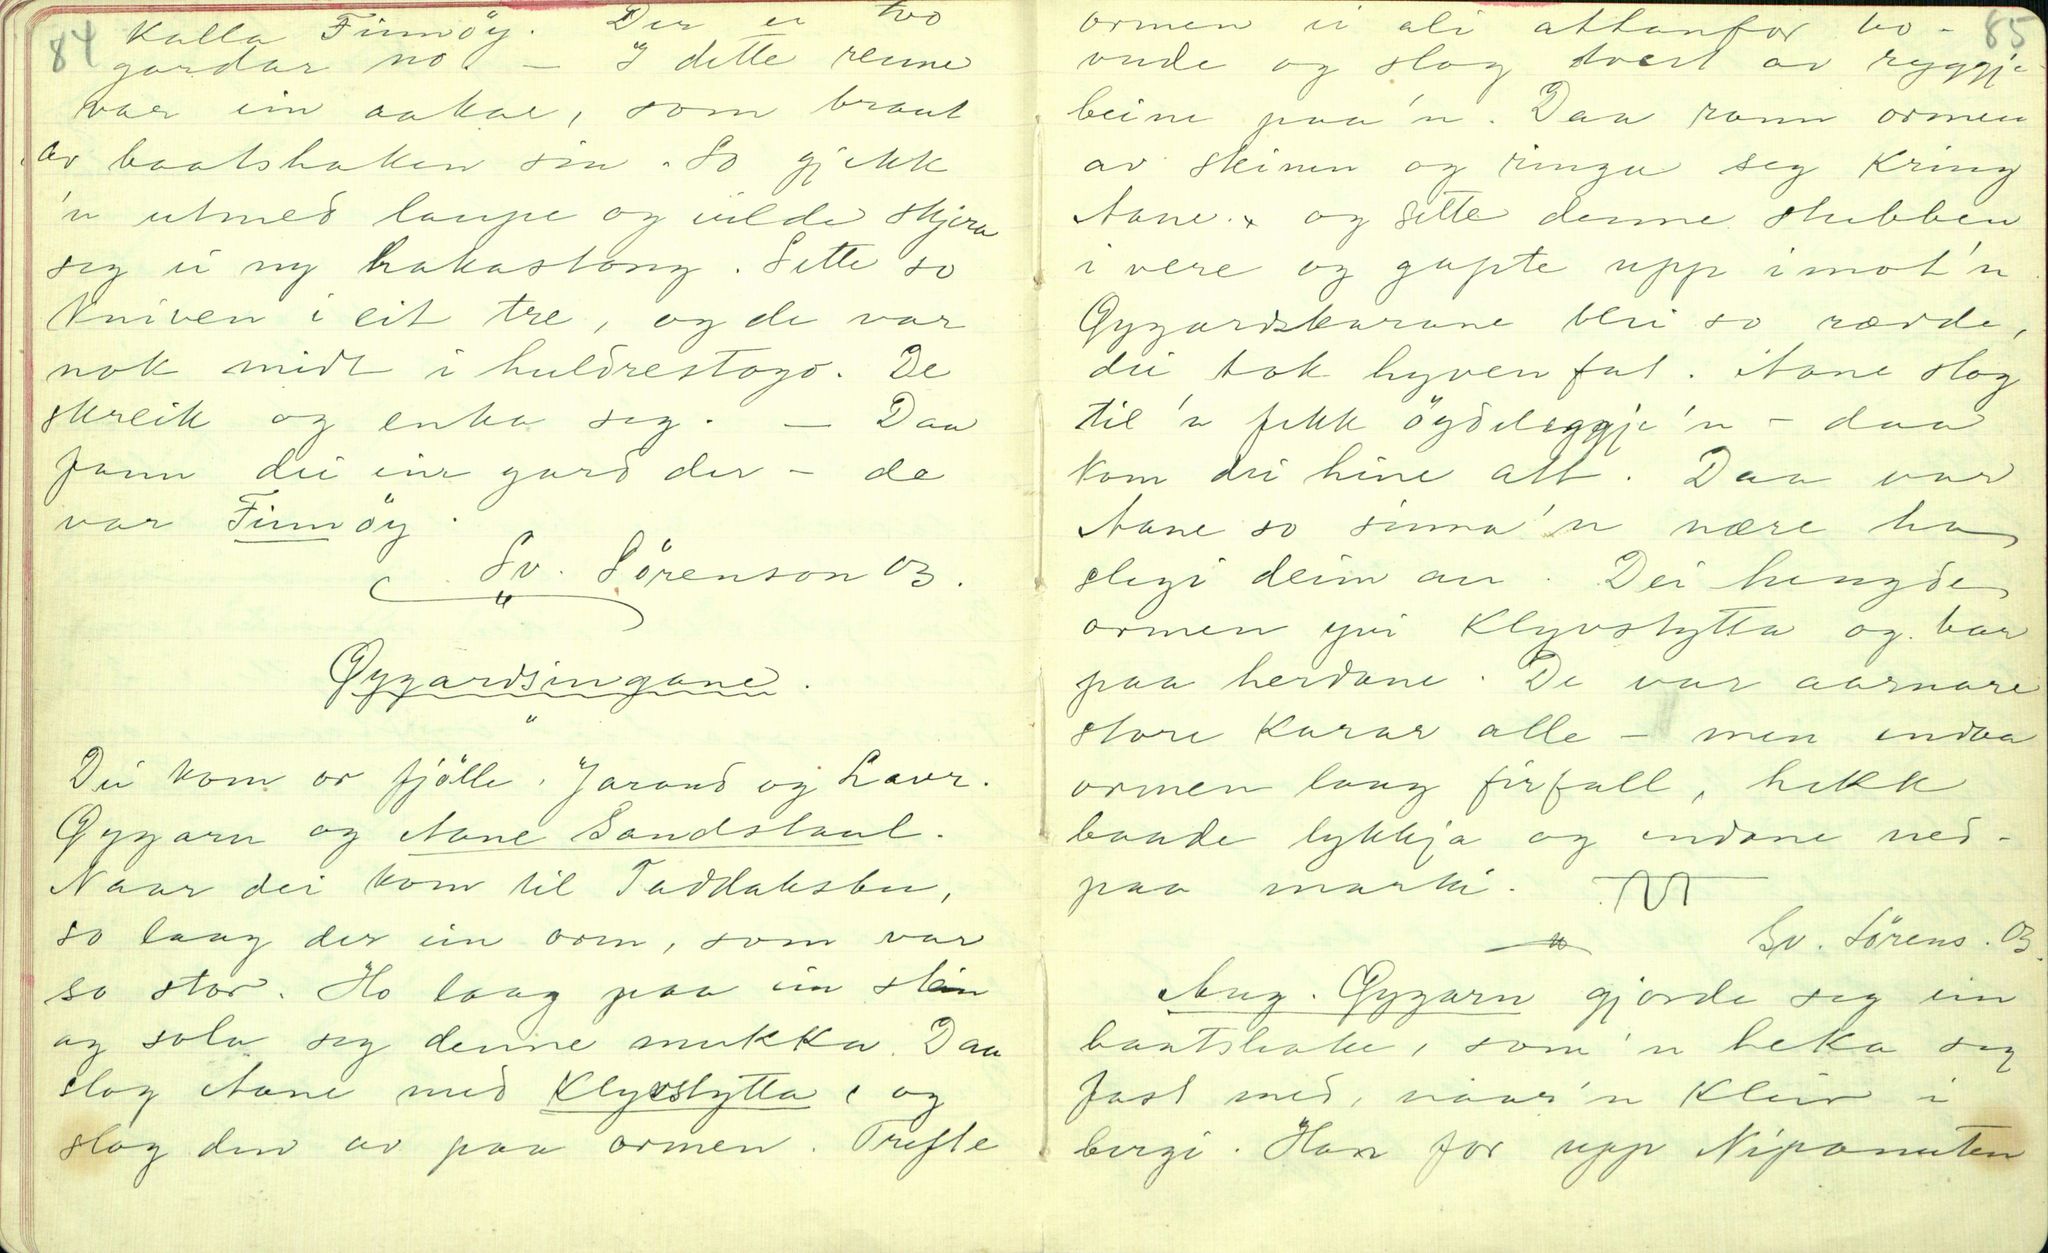 84
kalla Finnöy. Der er two
gardar no. — I dette renne
var ein aakal, som braut
av baatshaken sin. So gjekk
'n utmed laupe og vilde skjera
seg ei ny hakastong. Sette so
kniven i eit tre, og de var
nok midt i huldrestogo. De
skreik og enka seg. — Daa
fann dei ein gard der – de
var Finnöy.
Sv. Sörenson 03.
Øygardsingane.
Dei kom or fjölle, Jarand og Laur.
Øygarn og Aane Sandstaul.
Naar dei kom til Taddaksbu,
so laag der ein orm, som var
so stor. Ho laag paa ein stein
og sola seg denne mukka. Daa
slog Aane med Klyvstytta, og
slog den av paa ormen. Trefte
85
ormen ei ali attanfor ho-
vude og slog tvert av ryggje-
beine paa'n. Daa rann ormen
av steinen og ringa seg kring
Aane. og sette denne stubben
i vere og gapte upp imot'n
Øygardskarane blei so rædde,
dei tok kyven fat. Aane slog
til 'n fekk öydeleggje'n – daa
kom dei hine att. Daa var
Aane so sinna'n nære ha
slegi deim au. Dei hengde
ormen yvi Klyvstytta og bar
paa herdane. De var aarnare
store karar alle – men endaa
ormen laag firfall, hekk
baade lykkja og endane ned-
paa marki.
Sv. Sörens. 03.
Aug. Øygarn gjorde seg ein
baatshake, som 'n heka seg
fast med, naar'n kleiv i
bergi. Han for upp Nipanuten